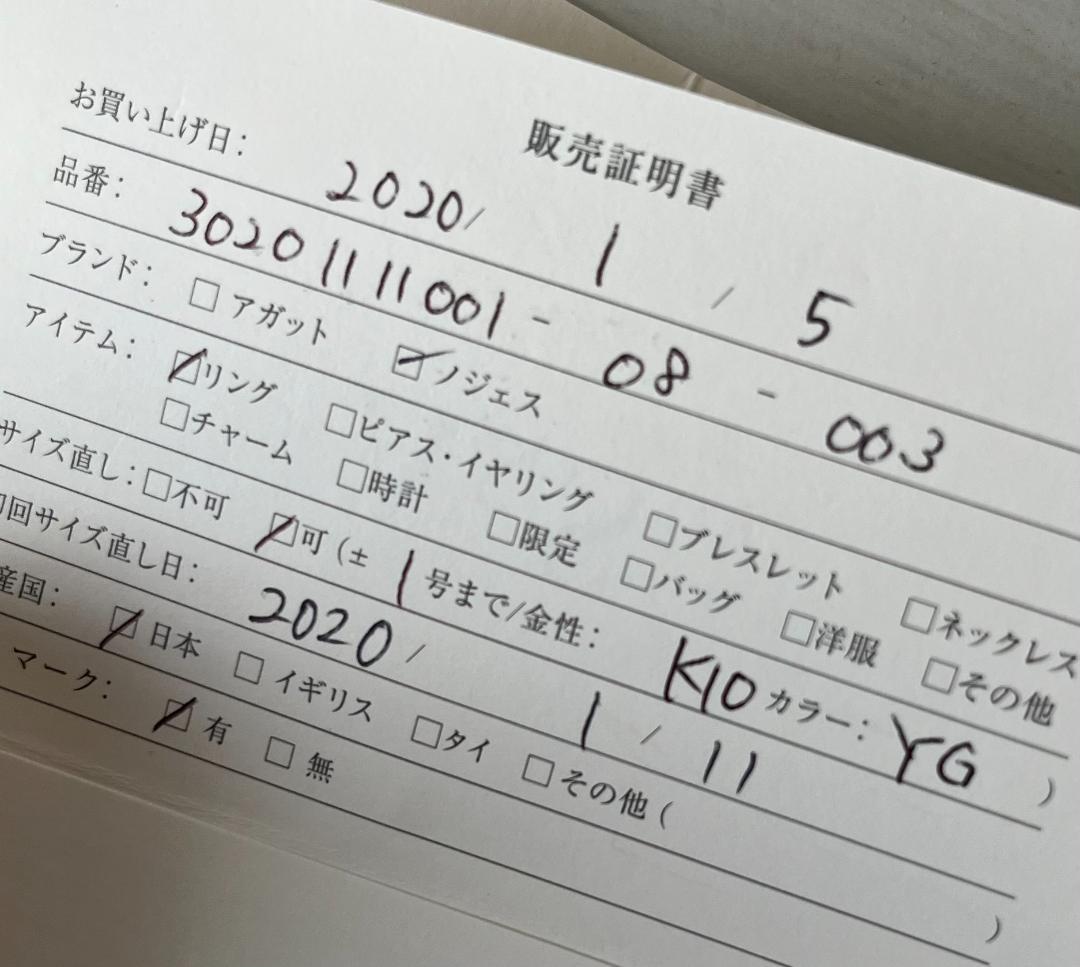 販売証明書
お買い上げ日: 2020/ 1 / 5
品番: 30201111001 - 08 - 003
ブランド: □ アガット ☑ ノジェス
アイテム: ☑リング □ピアス・イヤリング □ブレスレット □ネックレス
□チャーム □時計 □限定 □バッグ □洋服 □その他
サイズ直し: □不可 ☑可 (± 1 号まで/金性: K10 カラー: YG )
回サイズ直し日: 2020/ 1 / 11
産国: ☑ 日本 □ イギリス □タイ □その他 ( )
マーク: ☑ 有 □ 無